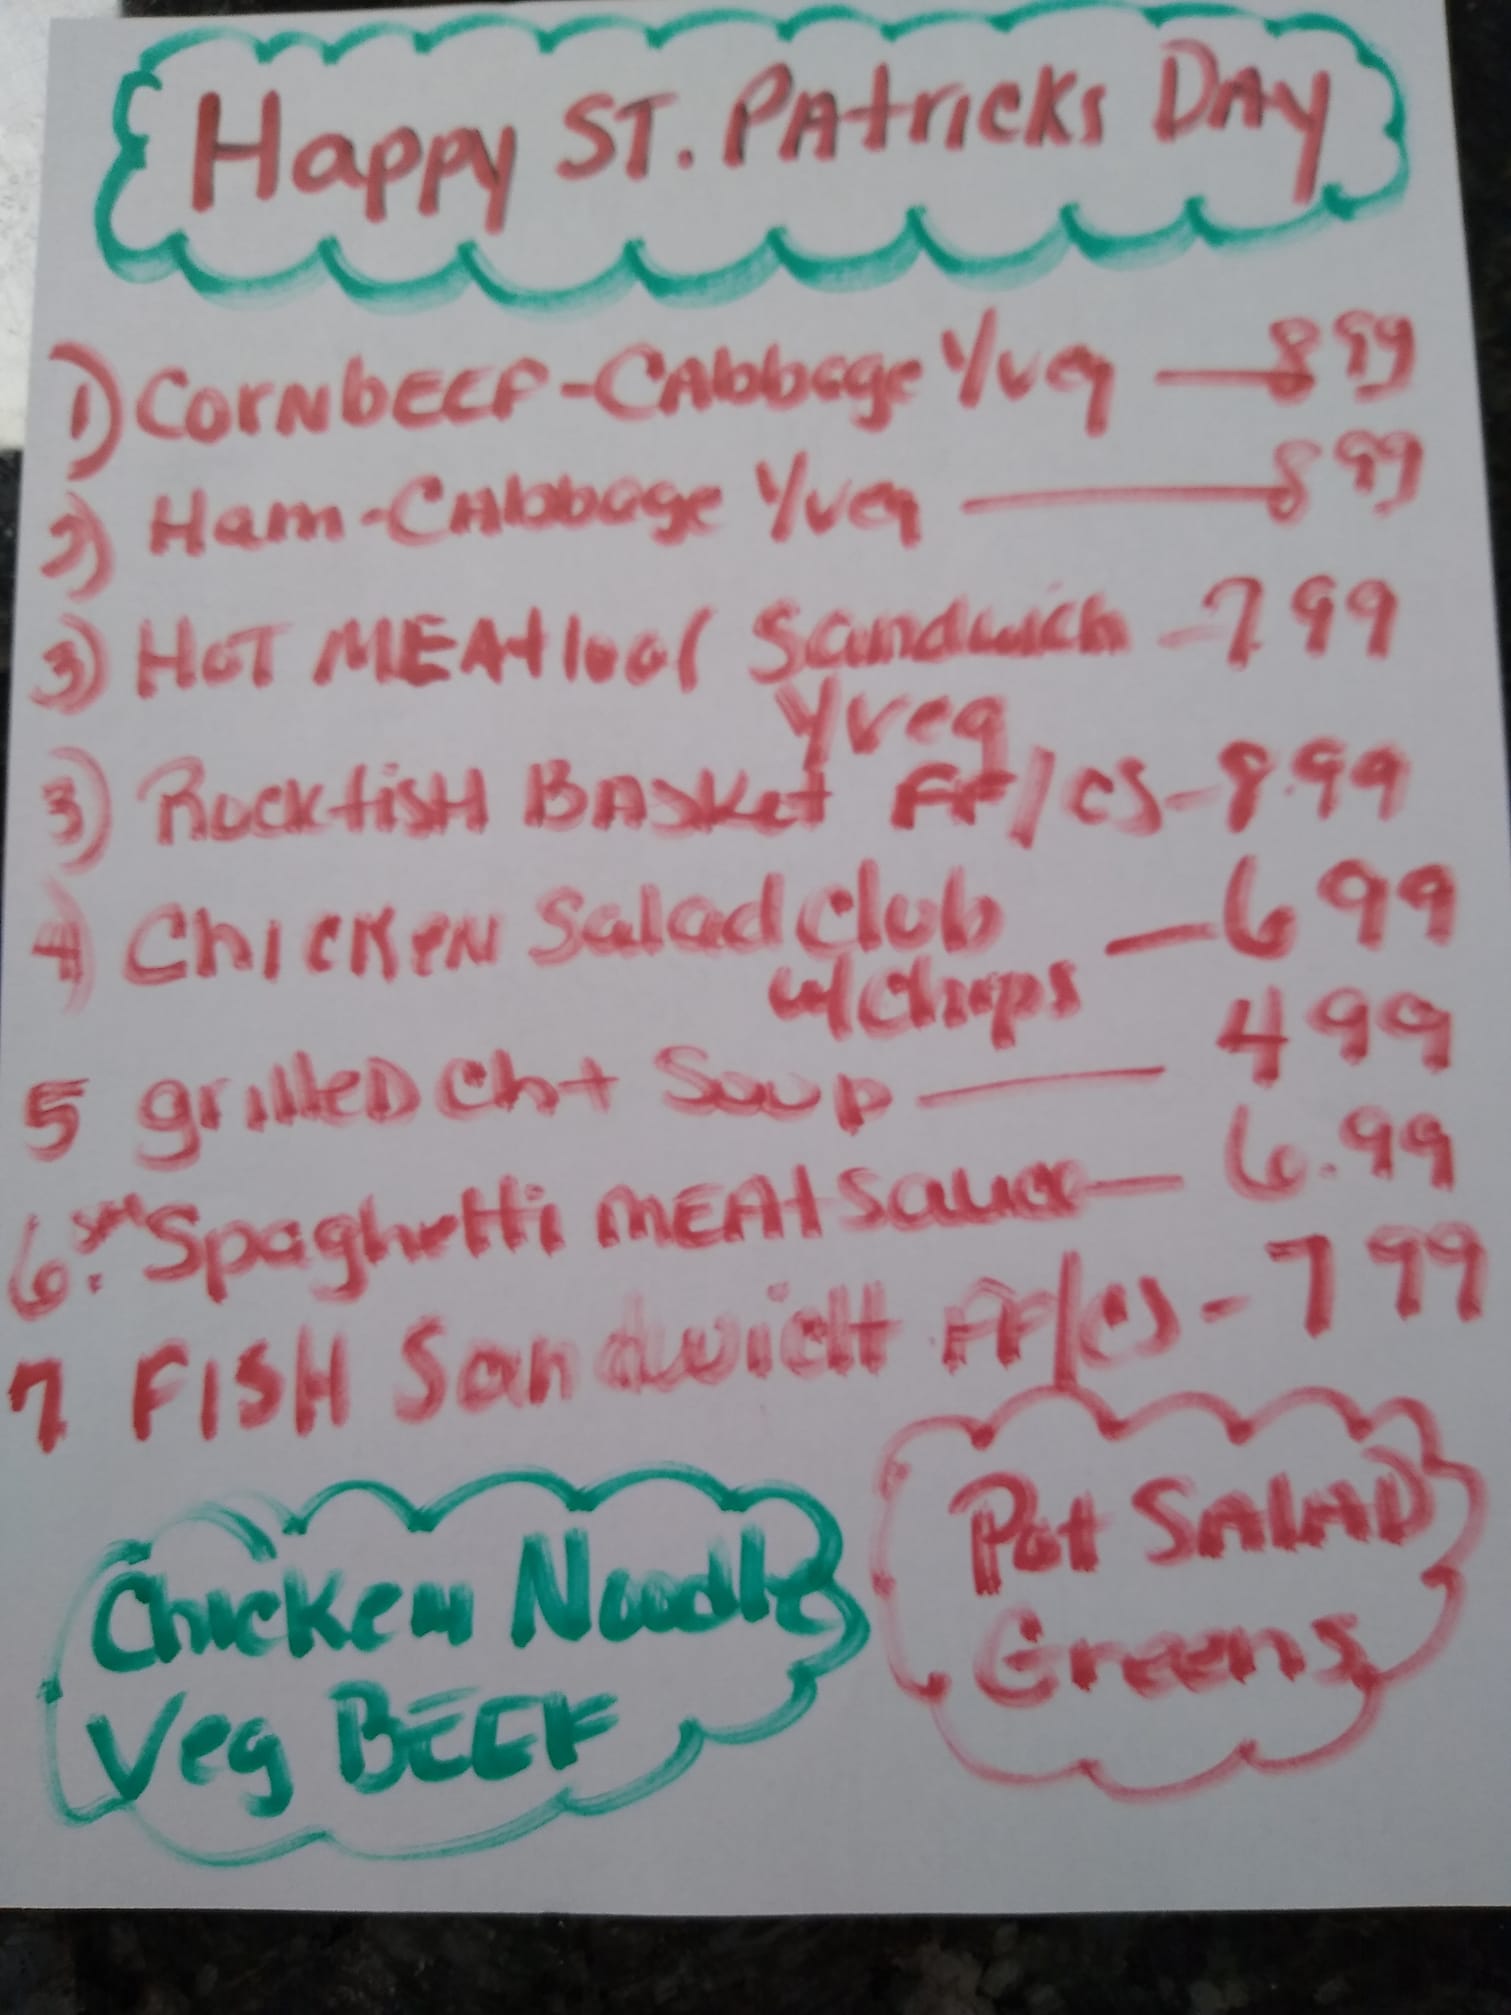 Happy ST. PAtricks DAy
1) CorNbEEF-CAbbage Y/veg — 8 99
2) Ham-CAbbage Y/veg — 8 99
3) HoT MEAtloaf Sandwich - 7 99
Y/veg
3) RockfisH BAsket FF/CS - 8.99
4) ChicKeN Salad Club — 6 99
w/Chips
5 grillED Ch + Soup — 4 99
6. Sm Spaghetti MEAt Sauce — 6.99
7 FISH SandwicH FF/CS - 7 99
Chicken Noodle
Veg BEEF
Pot SALAD
Greens